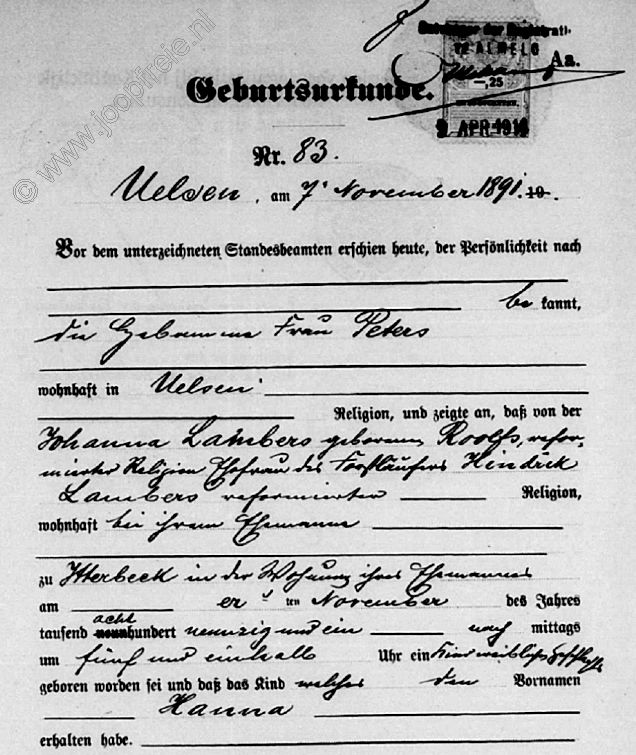 Aa.
—,25
9 APR 1914
Geburtsurkunde.
Nr. 83.
Uelsen, am 7. November 1891. 19 .
Vor dem unterzeichneten Standesbeamten erschien heute, der Persönlichkeit nach
be kannt,
die Hebamme Frau Peters
wohnhaft in Uelsen
Religion, und zeigte an, daß von der
Johanna Lambers geborenen Roolfs, refor-
mierter Religion Ehefrau des Hindrik
Lambers reformierter Religion,
wohnhaft bei ihrem Ehemanne
zu Itterbeck in der Wohnung ihres Ehemannes
am ten November des Jahres
acht
tausend neunhundert neunzig und ein nach mittags
um fünf und einhalb Uhr ein Kind weiblichen Geschlechts
geboren worden sei und daß das Kind welches den Vornamen
Hanna
erhalten habe.
© www.joopfreie.nl